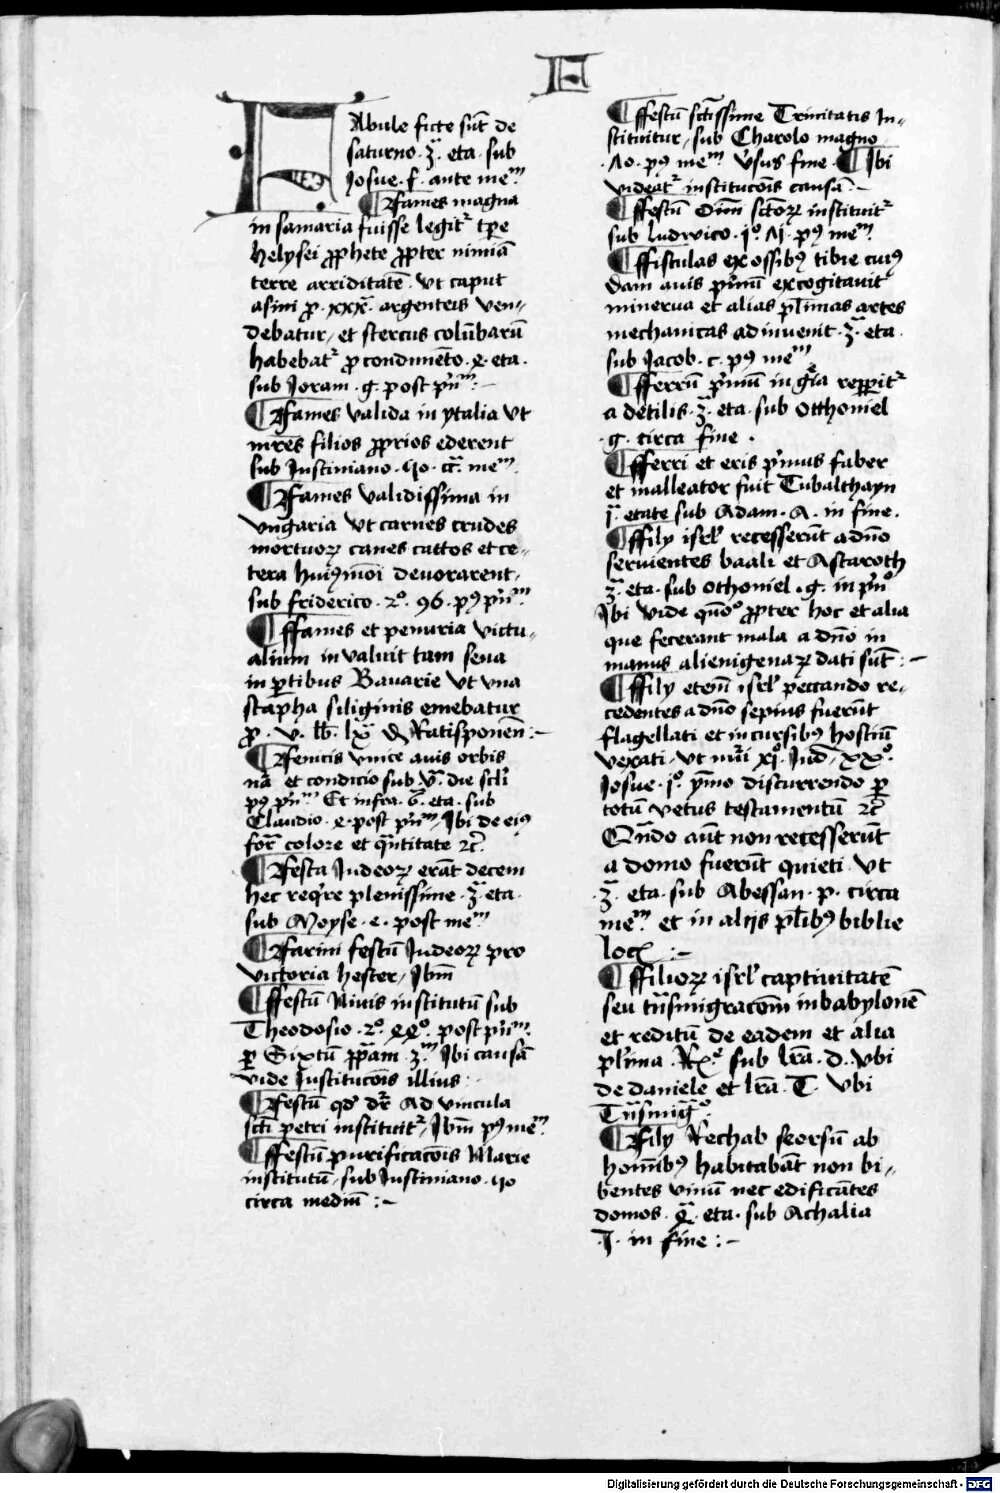 F
FAbule ficte sūt de
saturno · 3ª · eta · sub
Josue · f · ante meᵐ
¶ Fames magna
in samaria fuisse legitʳ tp̄e
helysei ꝓphete ꝓpter nimiā
terre arriditatē · vt caput
asini ꝓ · xxx · argenteis ven-
debatur, et stercus colūbarū
habebatʳ ꝓ condimēto · e · eta ·
sub Joram · g · post pⁱnᵐ :-
¶ Fames valida in ytalia vt
mr̄es filios ꝓprios ederent
sub Justiniano · 40 · cᵃ · meᵐ
¶ Fames validissima in
vngaria vt carnes crudes
mortuoꝝ canes cattos et ce-
tera huiꝰmōi devorarent,
sub friderico · 2º · 96 · pꝰ pⁱnᵐ
¶ ffames et penuria victu-
alium invaluit tam seua
in ꝑtibus Bauarie vt vna
stapha siliginis emebatur
ꝓ · v · lb̄ · lx · d̶ Ratisponen̄ :-
¶ Fenicis vnice auis orbis
nā et condicio sub · die sc̄li
pꝰ pⁱnᵐ Et infra · 6 · eta · sub
Claudio · e · post pⁱnᵐ, Ibi de eiꝰ
forᵃ colore et qᵃntitate ⁊c̄
¶ Festa Judeoꝝ erāt decem
hec reqⁱre plenissime · 3ª · eta ·
sub Moyse · e · post meᵐ
¶ Farini festū Judeoꝝ pro
victoria hester, Ibm̄
¶ ffestū Niuis institutū sub
Theodosio · 2º · post pⁱnᵐ
ꝑ Sixtū pp̄am · 3ᵐ Ibi causā
vide Institucōis illius :
¶ Festū qd̄ dr̄ Ad vincula
sc̄ti petri instituitʳ, Ibm̄ pꝰ meᵐ
¶ ffestū purificacōis Marie
institutū, sub Justiniano · 40
circa mediū :-
¶ ffestū sctīssime Trinitatis In-
stituitur, sub Charolo magno
· 10 · pꝰ meᵐ vˢsus fine · ¶ Ibi
videatʳ institucōis causā :-
¶ ffestū Oīm sctōꝝ instituitʳ
sub ludwico · jº · 11 · pꝰ meᵐ
¶ ffistulas ex ossibꝰ tibie cuiꝰ
dam auis pⁱmū excogitauit
minerva et alias pl̄imas artes
mechanicas adinuenit · 3ª · eta ·
sub Jacob · c · pꝰ meᵐ
¶ fferrū pⁱmū in gⁱcia repꝑitʳ
a detilis · 3ª · eta · sub Otthoniel
· g · circa fine ·
¶ fferri et eris pⁱmus faber
et malleator fuit Tubalthayn
jª etate sub Adam · A · in fine ·
¶ ffily isrl̄ recesserūt a dn̄o
seruientes baali et Astaroth
3ª · eta · sub Othoniel · g · in pⁱnº
Ibi vide qᵒmº ꝓpter hoc et alia
que fecerant mala a dn̄o in
manus alienigenaꝝ dati sūt :-
¶ ffily etem̄ isrl̄ peccando re-
cedentes a dn̄o sepius fuerūt
flagellati et incursibꝰ hostiū
vexati, vt nūi xjº · Jud̄ · xxº ·
Josue · jº · ymo discurrendo ꝑ
totū vetus testamentū ⁊c̄
Qn̄do aūt non recesserūt
a domo fuerūt quieti · vt
· 3ª · eta · sub Abessan · p · circa
meᵐ et in alijs pl̄ibꝰ biblie
locꝭ :-
¶ ffilioꝝ isrl̄ captiuitatē
seu tⁿsmigracōm in babylonē
et reditū de eadem et alia
pl̄ima · Rᵉ · sub lr̄a · d · vbi
de daniele et lr̄a · T · vbi
Tⁿsmigᵒ
¶ Fily Rechab seorsū ab
hom̄ibꝰ habitabāt non bi-
bentes vinū nec edificātes
domos · 4ª · eta · sub Achalia
· I · in fine :-
Digitalisierung gefördert durch die Deutsche Forschungsgemeinschaft - DFG